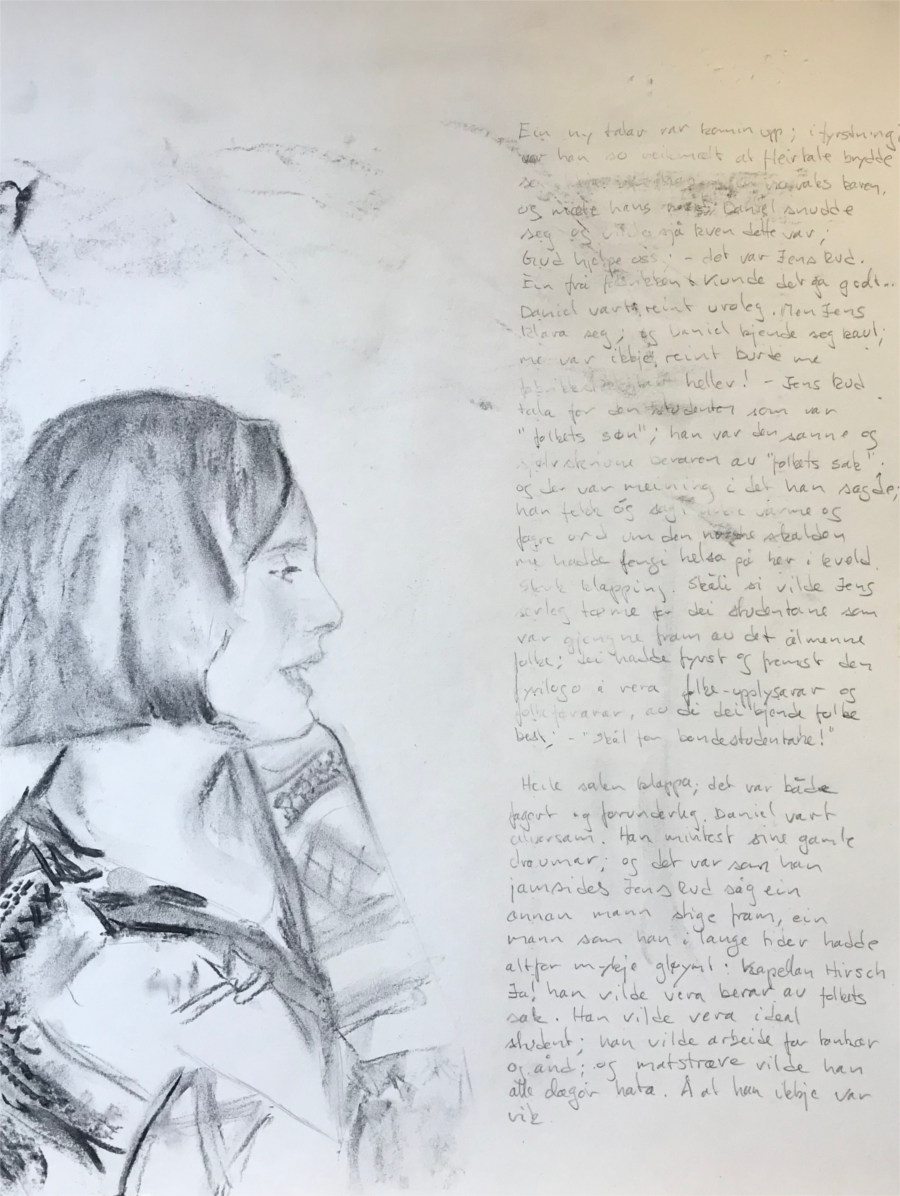 Ein ny talar var komin upp; i fyrstning
var han so veikmælt at fleirtale brydde
seg vaks karen,
og målte hans Daniel snudde
seg og vilde sjå kven dette var;
Gud hjelpe oss: - det var Jens Rud.
Ein frå kunde det gå godt..
Daniel vart reint uroleg. Men Jens
klara seg; og Daniel kjende seg kaul;
me var ikkje reint burte me
heller! - Jens Rud
tala for den studenten som var
"folkets søn"; han var den sanne og
beraren av "folkets sak".
og der var meining i det han sagde;
han felde óg varme og
fagre ord um den norske skalden
me hadde fengi helsa på her i kveld.
Sterk klapping. Skåli si vilde Jens
serleg tøme for dei studentane som
var gjengne fram av det ålmenne
folke; dei hadde fyrst og fremst den
fyriloga å vera folke-upplysarar og
folkeførarar, av di dei kjende folke
best; - "Skål for bondestudentane!"
Heile salen klappa; det var både
fagert og forunderleg. Daniel vart
ålvorsam. Han mintest sine gamle
draumar; og det var som han
jamsides Jens Rud såg ein
annan mann stige fram, ein
mann som han i lange tider hadde
altfor mykje gløymt: Kapellan Hirsch
Ja! han vilde vera berar av folkets
sak. Han vilde vera ideal
student; han vilde arbeide for tankar
og ånd; og matstræve vilde han
alle dagar hata. Å at han ikkje var
rik.